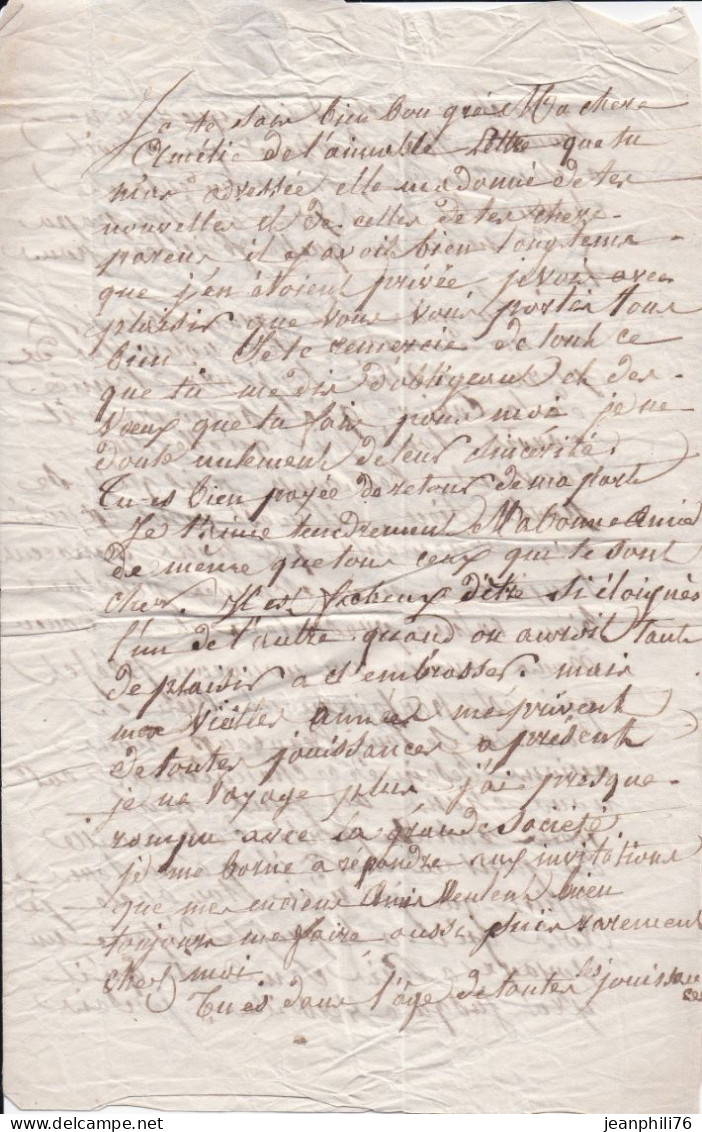 Je te sais bien bon gré Ma chere
Amélie de l'aimable lettre que tu
m'as adressée elle ma donné de tes
nouvelles et de celles de tes chers
parens il y avoit bien longtems
que j'en étoient privée je vois avec
plaisir que vous vous portes tous
bien. Je te remercie de tout ce
que tu me dis d'obligeant et des
voeux que tu fais pour moi je ne
doute nulement de leur sincérité
tu es bien payée de retour de ma part
Je t'aime tendrement Ma bonne Amie
de même que tous ceux qui te sont
cher. Il est facheux d'être si éloignés
l'un de l'autre quand on auroit tant
de plaisir a s'embrasser. mais
mes vieilles années me privent
de toutes jouissances a présent
je ne voyage plus j'ai presque
rompu avec la grande Societé
je me borne a répondre aux invitations
que mes enciens Amis veulent bien
toujours me faire aussi suis rarement
chez moi
Tu es dans l'âge de toutes les jouissan
ces
jeanphili76